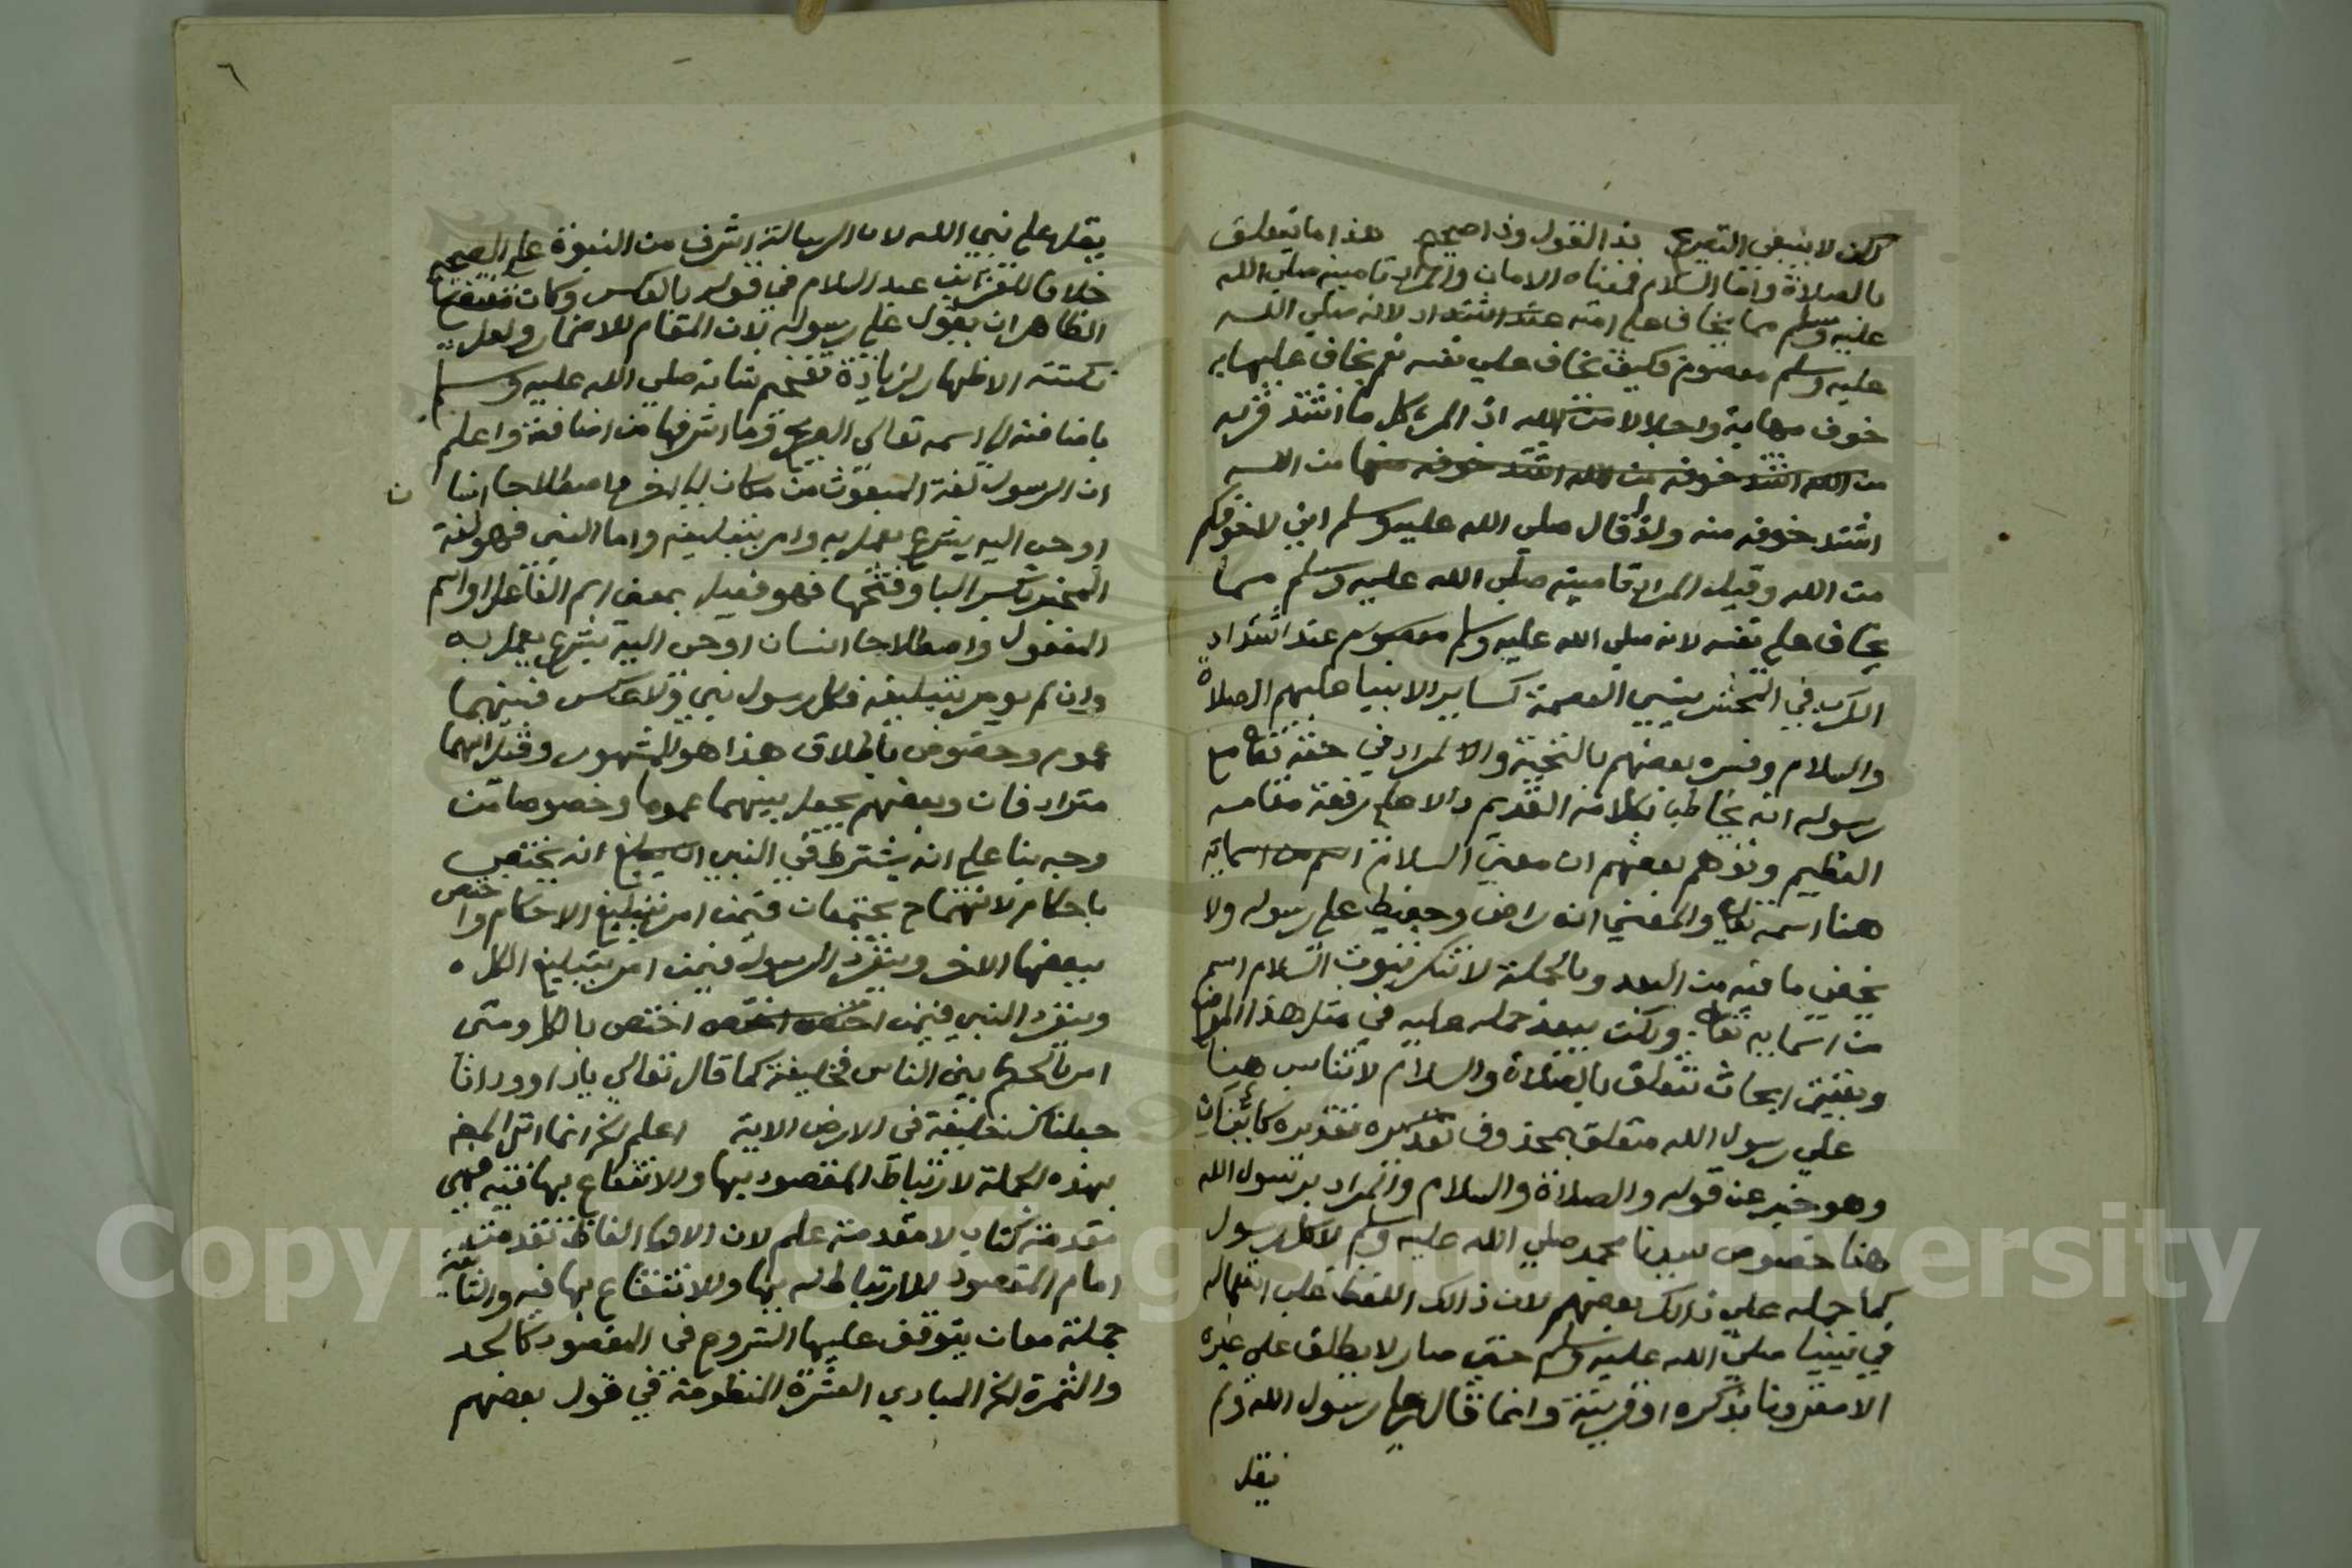 لكن لا ينبغي التصريح بذا القول وذا صحيح هذا ما يتعلق
بالصلاة واما السلام فمعناه الامان والمراد تامينه صلي الله
عليه وسلم مما يخاف علي امته عند اشتداد لانه صلي الله
عليه وسلم معصوم فكيف يخاف علي نفسه نعم يخاف عليها به
خوف مهابة واجلالا من الله اذ المرء كل ما اشتد قربه
من الله اشتد خوفه من الله اشتد خوفه منها من الله
اشتد خوفه منه ولذا قال صلي الله عليه وسلم اني لاخوفكم
من الله وقيل المراد تامينه صلي الله عليه وسلم مما
يخاف علي نفسه لانه صلي الله عليه وسلم معصوم عند اشتداد
الكرب في المحشر ينسي العصمة كساير الانبيا عليهم الصلاة
والسلام وفسره بعضهم بالتحية والمراد في حقه تعالى مع
رسوله انه يخاطبه بكلامه القديم دالا علي رفعة مقامه
العظيم وتوهم بعضهم ان معني السلام اسم من اسمايه
هنا اسمه تعالى والمعني انه راض وحفيظ علي رسوله ولا
يخفي ما فيه من البعد وبالجملة لا ننكر ثبوت السلام اسم
من اسمايه تعالى ولكن يبعد حمله عليه في مثل هذا الموضع
وبقيت ابحاث تتعلق بالصلاة والسلام لا تناسب هنا
علي رسول الله متعلق بمحذوف تقديره كائنان
وهو خبر عن قوله والصلاة والسلام والمراد برسول الله
هنا خصوص سيدنا محمد صلي الله عليه وسلم لا كل رسول
كما حمله علي ذالك بعضهم لان ذالك اللفظ غلب استعماله
في نبينا صلي الله عليه وسلم حتي صار لا يطلق علي غيره
الا مقرونا بذكره او قرينة وانما قال علي رسول الله ولم
يقل
٦
يقل علي نبي الله لان الرسالة اشرف من النبوة علي الصحيح
خلافا للعز بن عبد السلام في قوله بالعكس وكان مقتضى
الظاهر ان يقول علي رسوله لان المقام للاضمار ولعل
نكتته الاظهار لزيادة تفخيم شانه صلي الله عليه وسلم
باضافته الي اسمه تعالي الصريح وما اشرفها من اضافة واعلم
ان الرسول لغة المبعوث من مكان الي اخر واصطلاحا انسا ن
اوحي اليه بشرع يعمل به وامر بتبليغه واما النبي فهو لغة
المخبر بكسر البا وفتحها فهو فعيل بمعني اسم الفاعل او اسم
المفعول واصطلاحا انسان اوحي اليه بشرع يعمل به
وان لم يومر بتبليغه فكل رسول نبي ولا عكس فبينهما
عموم وخصوص باطلاق هذا هو المشهور وقيل انهما
مترادفان وبعضهم يجعل بينهما عموما وخصوصا من
وجه بنا علي انه يشترط في النبي ان يبلغ انه يختص
باحكام لانهما ح يجتمعان فيمن امر بتبليغ الاحكام واختص
ببعضها الاخر وينفرد الرسول فيمن امر بتبليغ الكل
وينفرد النبي فيمن اختص اختص اختص بالكل ومتى
امر بالحكم بين الناس فخليفة كما قال تعالي يا داوود انا
جعلناك خليفة في الارض الاية اعلم الخ انما اتى المصنف
بهذه الجملة لارتباط المقصود بها والانتفاع بها فيه فهي
مقدمة كتاب لا مقدمة علم لان الاولى الفاظ تقدمت
امام المقصود للارتباط له بها وللانتفاع بها فيه والثانية
جملة معان يتوقف عليها الشروع في المقصود كالحد
والثمرة الخ المبادي العشرة المنظومة في قول بعضهم
Copyright © King Saud University